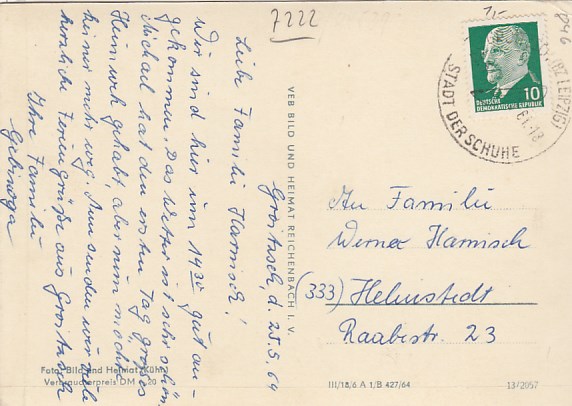 7222
7,-
846
Groitzsch, d. 25.5.64
Liebe Familie Harnisch!
Wir sind hier um 14³⁰ gut an-
gekommen. Das Wetter ist sehr schön.
Michael hat den ersten Tag großes
Heimweh gehabt, aber nun möchte
er nimmer mehr weg. Nun senden wir viele
herzliche Feriengrüße aus Groitzsch
Ihre Familie
VEB BILD UND HEIMAT REICHENBACH I. V.
10
DEUTSCHE
DEMOKRATISCHE REPUBLIK
(BZ LEIPZIG)
STADT DER SCHUHE
An Familie
Werner Harnisch
(333) Helmstedt
Raabestr. 23
Foto: Bild und Heimat (Kühn)
Verbraucherpreis DM 0,20
III/18/6 A 1/B 427/64
13/2057